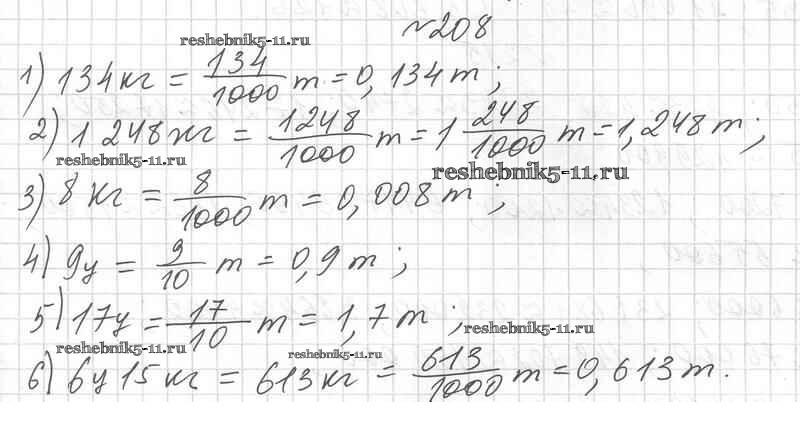 №208
reshebnik5-11.ru
1) 134кг = 134/1000 т = 0,134т;
2) 1 248кг = 1248/1000 т = 1 248/1000 т = 1,248т;
reshebnik5-11.ru
reshebnik5-11.ru
3) 8 кг = 8/1000 т = 0,008т;
4) 9ц = 9/10 т = 0,9т;
5) 17ц = 17/10 т = 1,7т;
reshebnik5-11.ru
reshebnik5-11.ru
reshebnik5-11.ru
6) 6ц 15кг = 613кг = 613/1000 т = 0,613т.